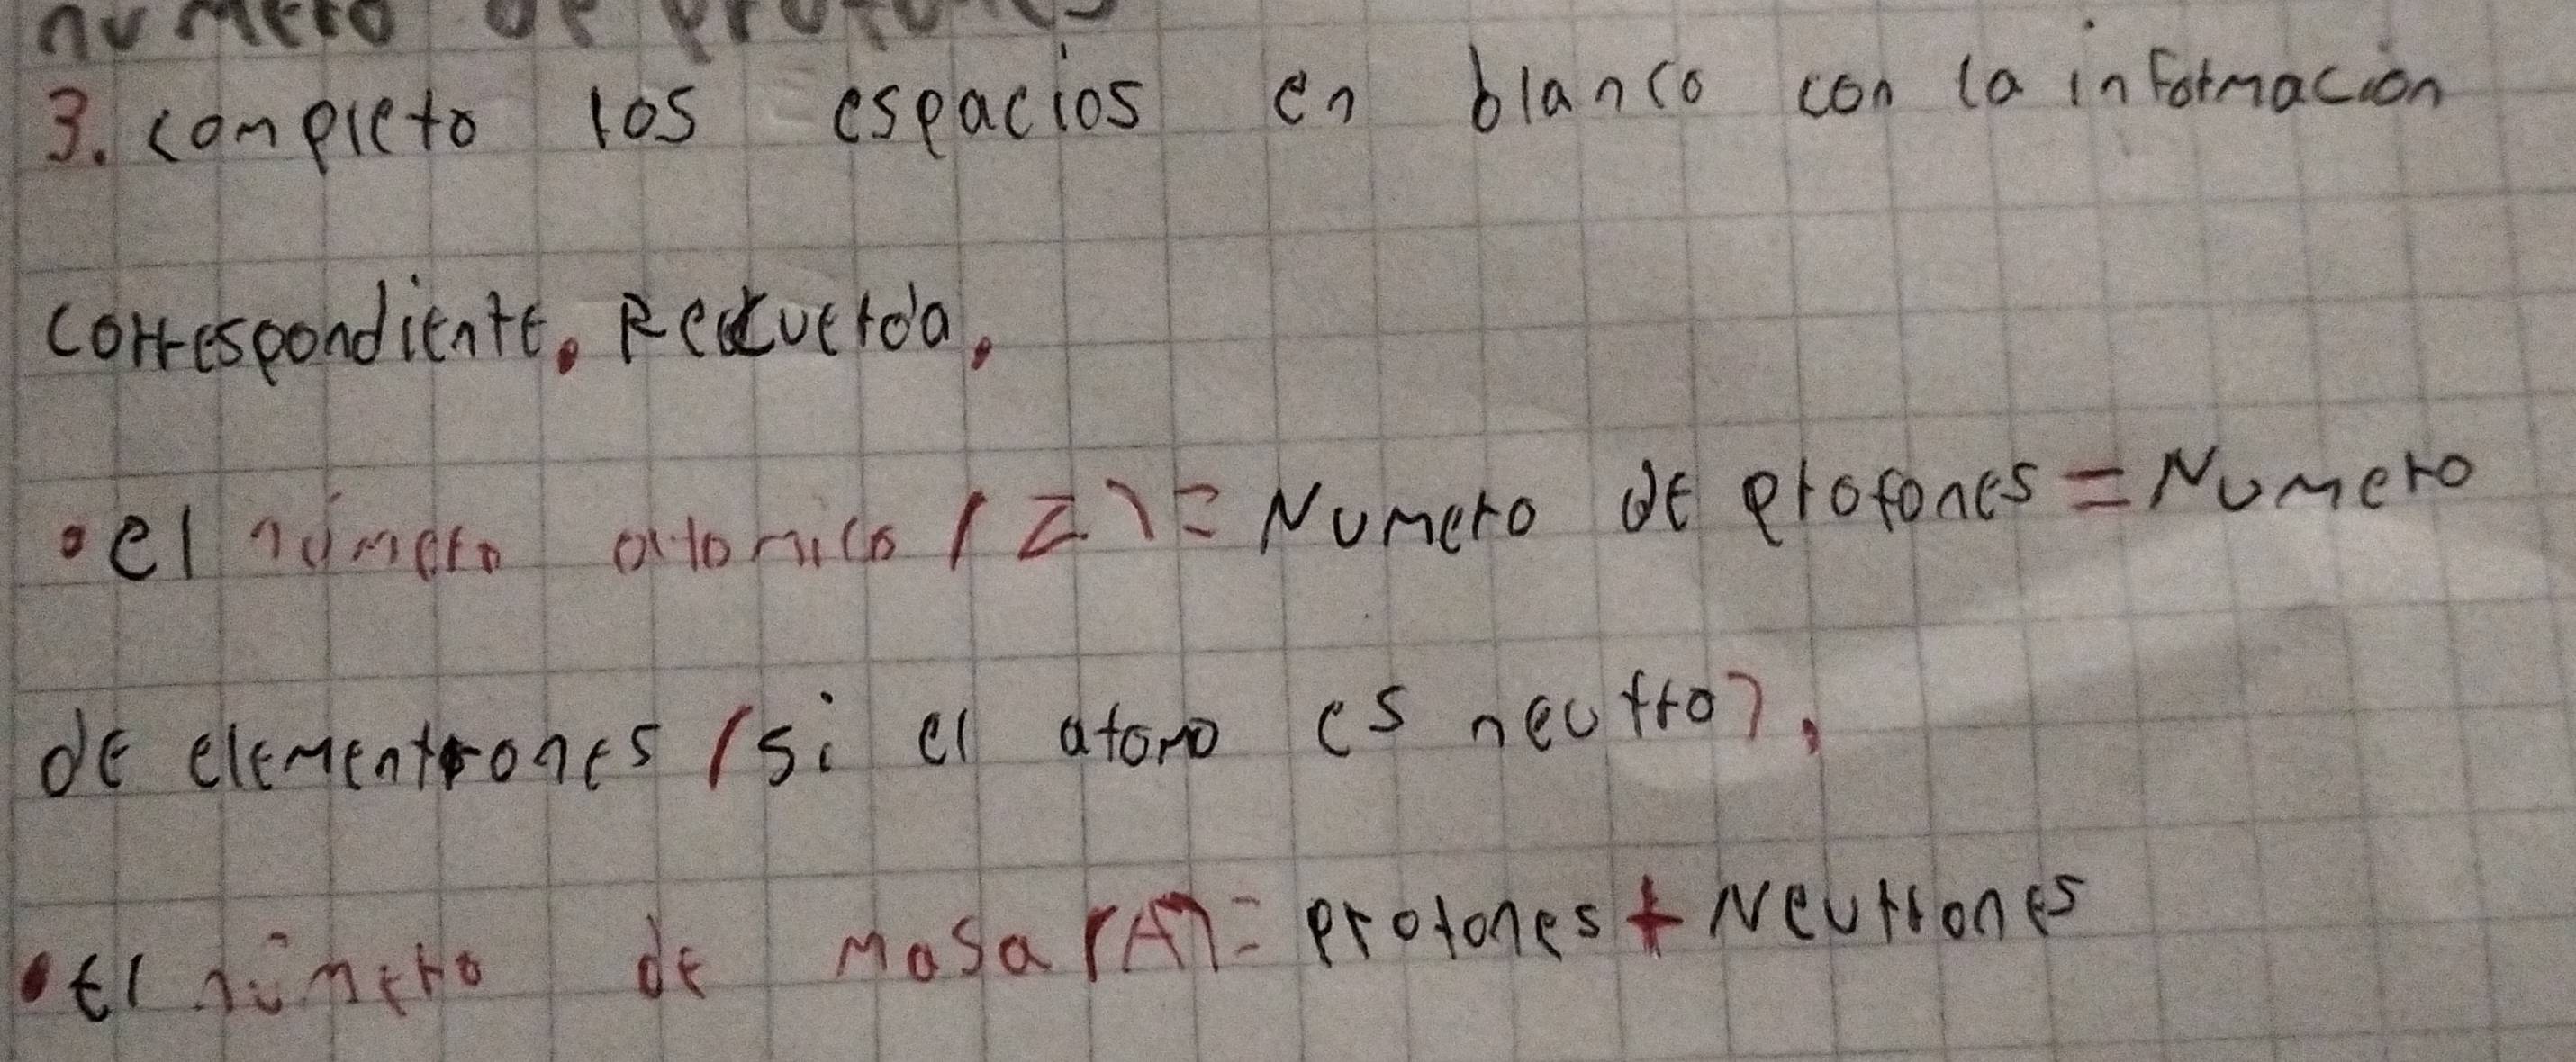 numero de protones
3. completo los espacios en blanco con la información
correspondiente. Recuerda.
• el número atomico (Z) = Numero de protones = Numero
de elementrones (si el atomo es neutro).
• El número de masa (A) = protones + Neutrones